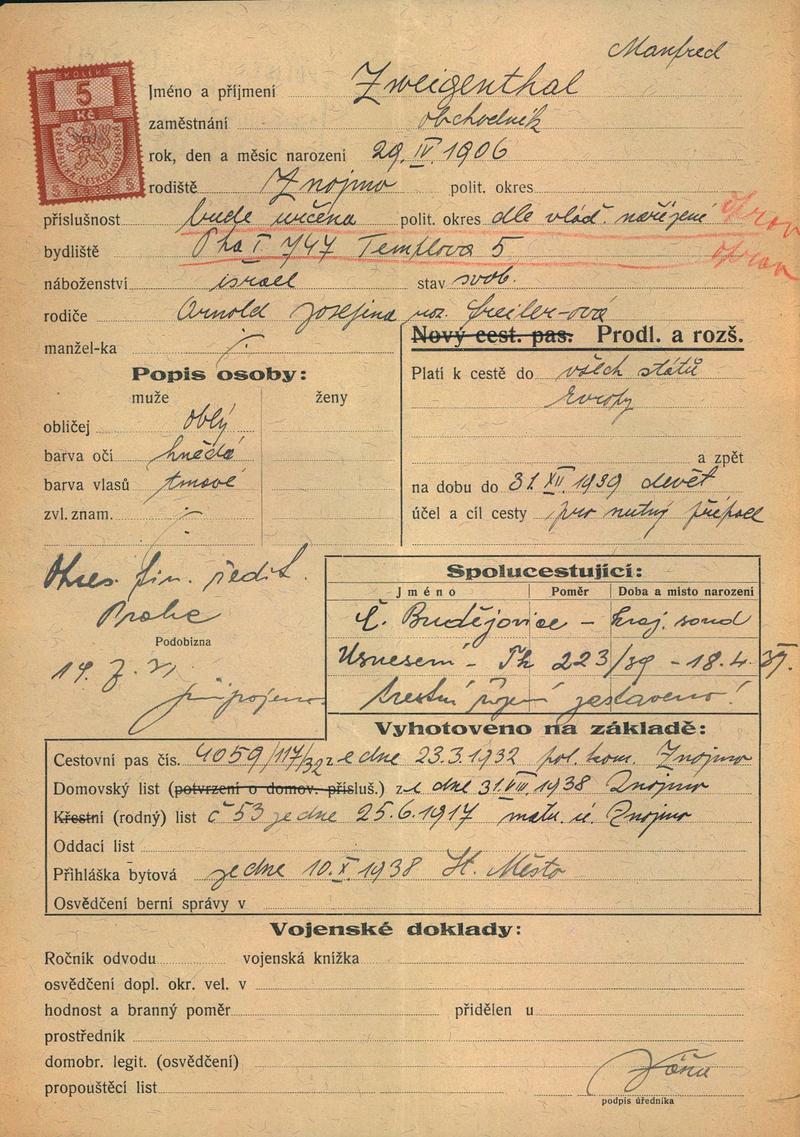 Manfred
KOLEK
5
Kč
Jméno a příjmení Zweigenthal
zaměstnání obchodník
rok, den a měsíc narozeni 29. IV. 1906
rodiště Znojmo polit. okres
příslušnost bude určena polit. okres dle vlád. nařízené
bydliště Pha I 747 Templova 5
náboženství israel stav svob.
rodiče Arnold Josefina roz.
manžel-ka
Nový cest. pas. Prodl. a rozš.
Popis osoby:
muže ženy
obličej oblý
barva očí hnědá
barva vlasů tmavé
zvl. znam.
Platí k cestě do všech států
Evropy
a zpět
na dobu do 31. XII. 1939 devět
účel a cíl cesty pro nutný případ
Okres. fin. ředit.
Praha
Podobizna
připojeno
Spolucestující:
Jméno Poměr Doba a místo narození
Č. Budějovice – kraj. soud
Usnesení – Tk 223/39 – 18.4.39.
trestní řízení zastaveno!
Vyhotoveno na základě:
Cestovní pas čís. 4059/117/32 z e dne 23.3.1932 pol. kom. Znojmo
Domovský list (potvrzení o domov. přísluš.) z e dne 31. VIII. 1938 Znojmo
Křestní (rodný) list č 53 ze dne 25.6.1917 matr. ú. Znojmo
Oddací list
Přihláška bytová ze dne 10. X. 1938 St. Město
Osvědčení berní správy v
Vojenské doklady:
Ročník odvodu vojenská knížka
osvědčení dopl. okr. vel. v
hodnost a branný poměr přidělen u
prostředník
domobr. legit. (osvědčení)
propouštěcí list
podpis úředníka